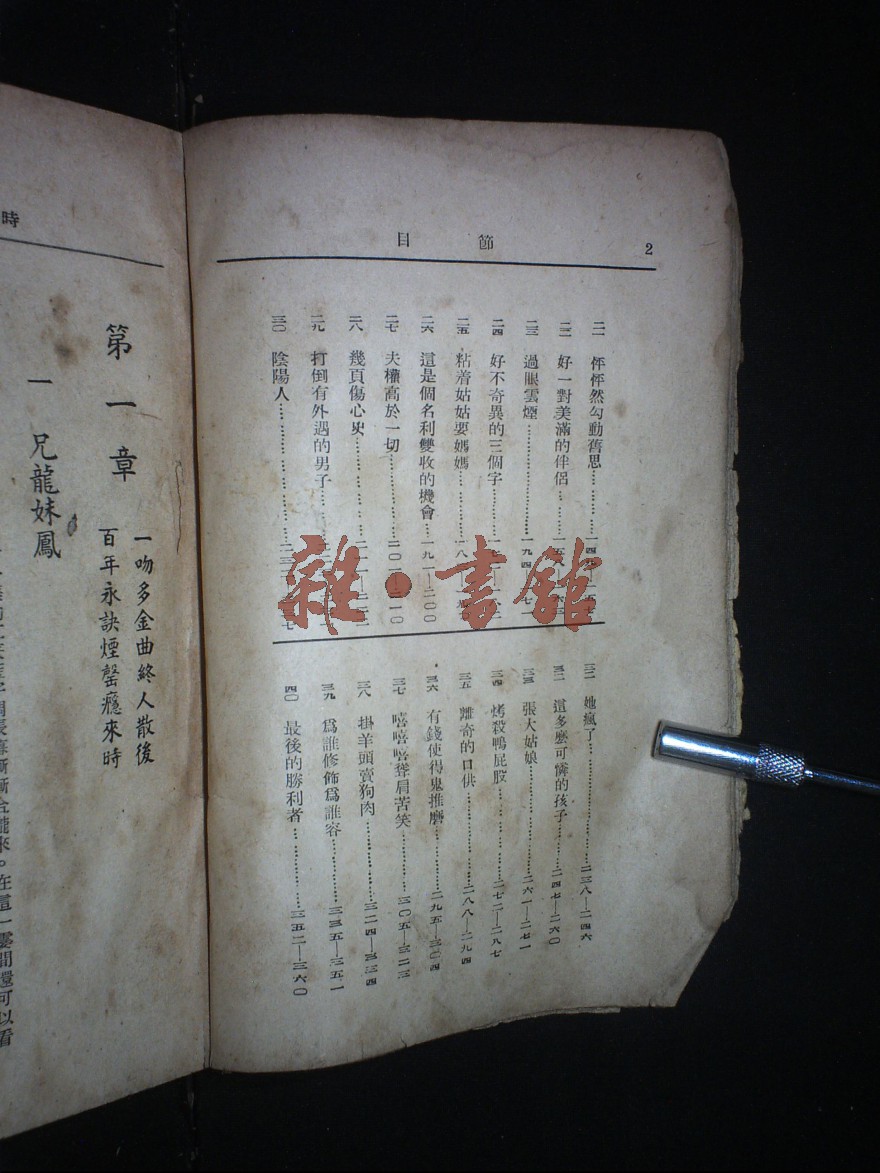 節目
2
二一 怦怦然勾動舊思…………一四
二二 好一對美滿的伴侶………一五
二三 過眼雲煙…………一
二四 好不奇異的三個字………一
二五 粘着姑姑要媽媽…………一八
二六 這是個名利雙收的機會……一九一—二〇〇
二七 夫權高於一切…………二〇一—二一〇
二八 幾頁傷心史…………二一一—二二二
二九 打倒有外遇的男子………二
三〇 陰陽人…………二三
三一 她瘋了…………二三八—二四六
三二 這多麽可憐的孩子………二四七—二六〇
三三 張大姑娘…………二六一—二七一
三四 烤殺鴨屁股…………二七二—二八七
三五 離奇的口供…………二八八—二九四
三六 有錢使得鬼推磨…………二九五—三〇四
三七 嘻嘻嘻聳肩苦笑…………三〇五—三二三
三八 掛羊頭賣狗肉…………三二四—三三四
三九 爲誰修飾爲誰容…………三三五—三五一
四〇 最後的勝利者…………三五二—三六〇
雜·書館
時
第一章
一吻多金曲終人散後
百年永訣煙罄癮來時
一 兄龍妹鳳
來。在這一霎間還可以看